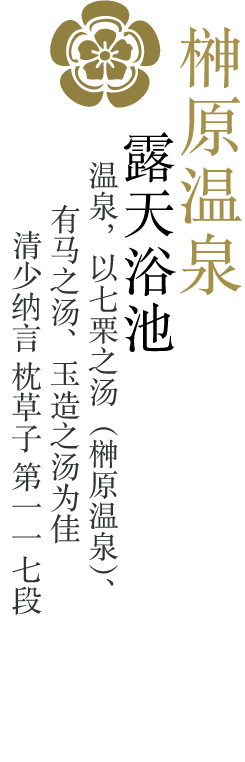 榊原温泉
露天浴池
温泉，以七栗之汤（榊原温泉）、
有马之汤、玉造之汤为佳
清少纳言 枕草子 第一一七段